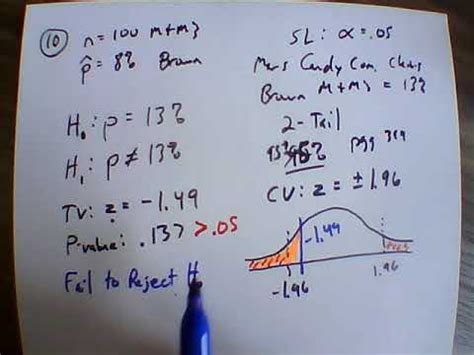 10 n = 100 M+M's
p̂ = 8% Brown
SL: α = .05
Mars Candy Com. Claims
Brown M+M's = 13%
H₀: p = 13%
H₁: p ≠ 13%
2-Tail
95%
pg
TV: z = -1.49
CV: z = ± 1.96
P-value: .137 > .05
Fail to Reject H
-1.49
-1.96
1.96